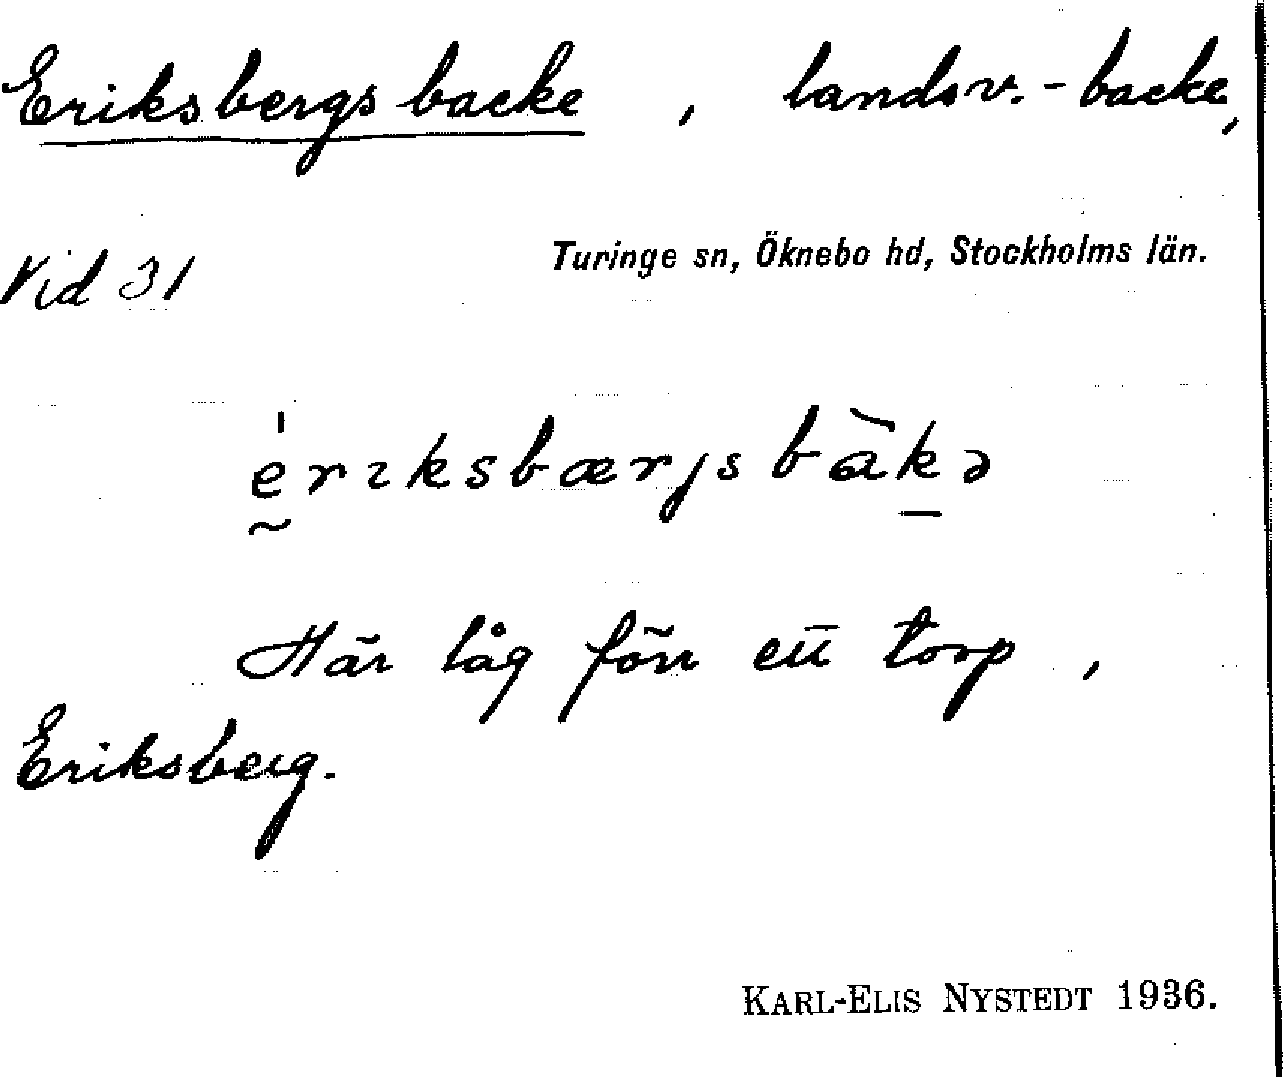 Eriksbergsbacke, landsv.-backe,
Vid 31
Turinge sn, Öknebo hd, Stockholms län.
ḛ̍rɪksbærjsbàk̠ə
Här låg förr ett torp,
Eriksberg.
KARL-ELIS NYSTEDT 1936.